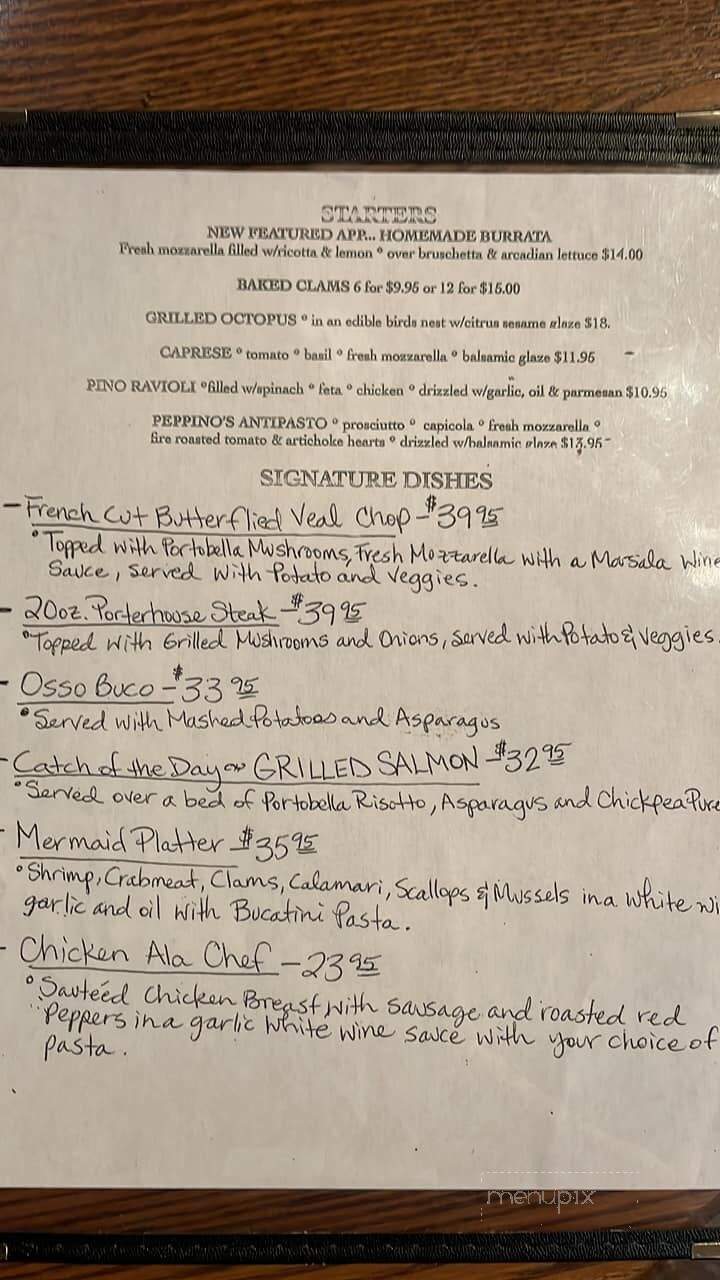 STARTERS
NEW FEATURED APP... HOMEMADE BURRATA
Fresh mozzarella filled w/ricotta & lemon ° over bruschetta & arcadian lettuce $14.00
BAKED CLAMS 6 for $9.95 or 12 for $15.00
GRILLED OCTOPUS ° in an edible birds nest w/citrus sesame glaze $18.
CAPRESE ° tomato ° basil ° fresh mozzarella ° balsamic glaze $11.95
PINO RAVIOLI °filled w/spinach ° feta ° chicken ° drizzled w/garlic, oil & parmesan $10.95
PEPPINO'S ANTIPASTO ° prosciutto ° capicola ° fresh mozzarella °
fire roasted tomato & artichoke hearts ° drizzled w/balsamic glaze $13.95
SIGNATURE DISHES
- French Cut Butterflied Veal Chop - $39 95
° Topped with Portobella Mushrooms, Fresh Mozzarella with a Marsala Wine
Sauce, served with Potato and Veggies.
- 20oz. Porterhouse Steak - $39 95
° Topped with Grilled Mushrooms and Onions, served with Potato & Veggies.
- Osso Buco - $33 95
° Served with Mashed Potatoes and Asparagus
- Catch of the Day or GRILLED SALMON - $32 95
° Served over a bed of Portobella Risotto, Asparagus and Chickpea Pure
- Mermaid Platter - $35 95
° Shrimp, Crabmeat, Clams, Calamari, Scallops & Mussels in a white wi
garlic and oil with Bucatini Pasta.
- Chicken Ala Chef - 23 95
° Sauteéd Chicken Breast with sausage and roasted red
Peppers in a garlic white wine sauce with your choice of
pasta.
menupix